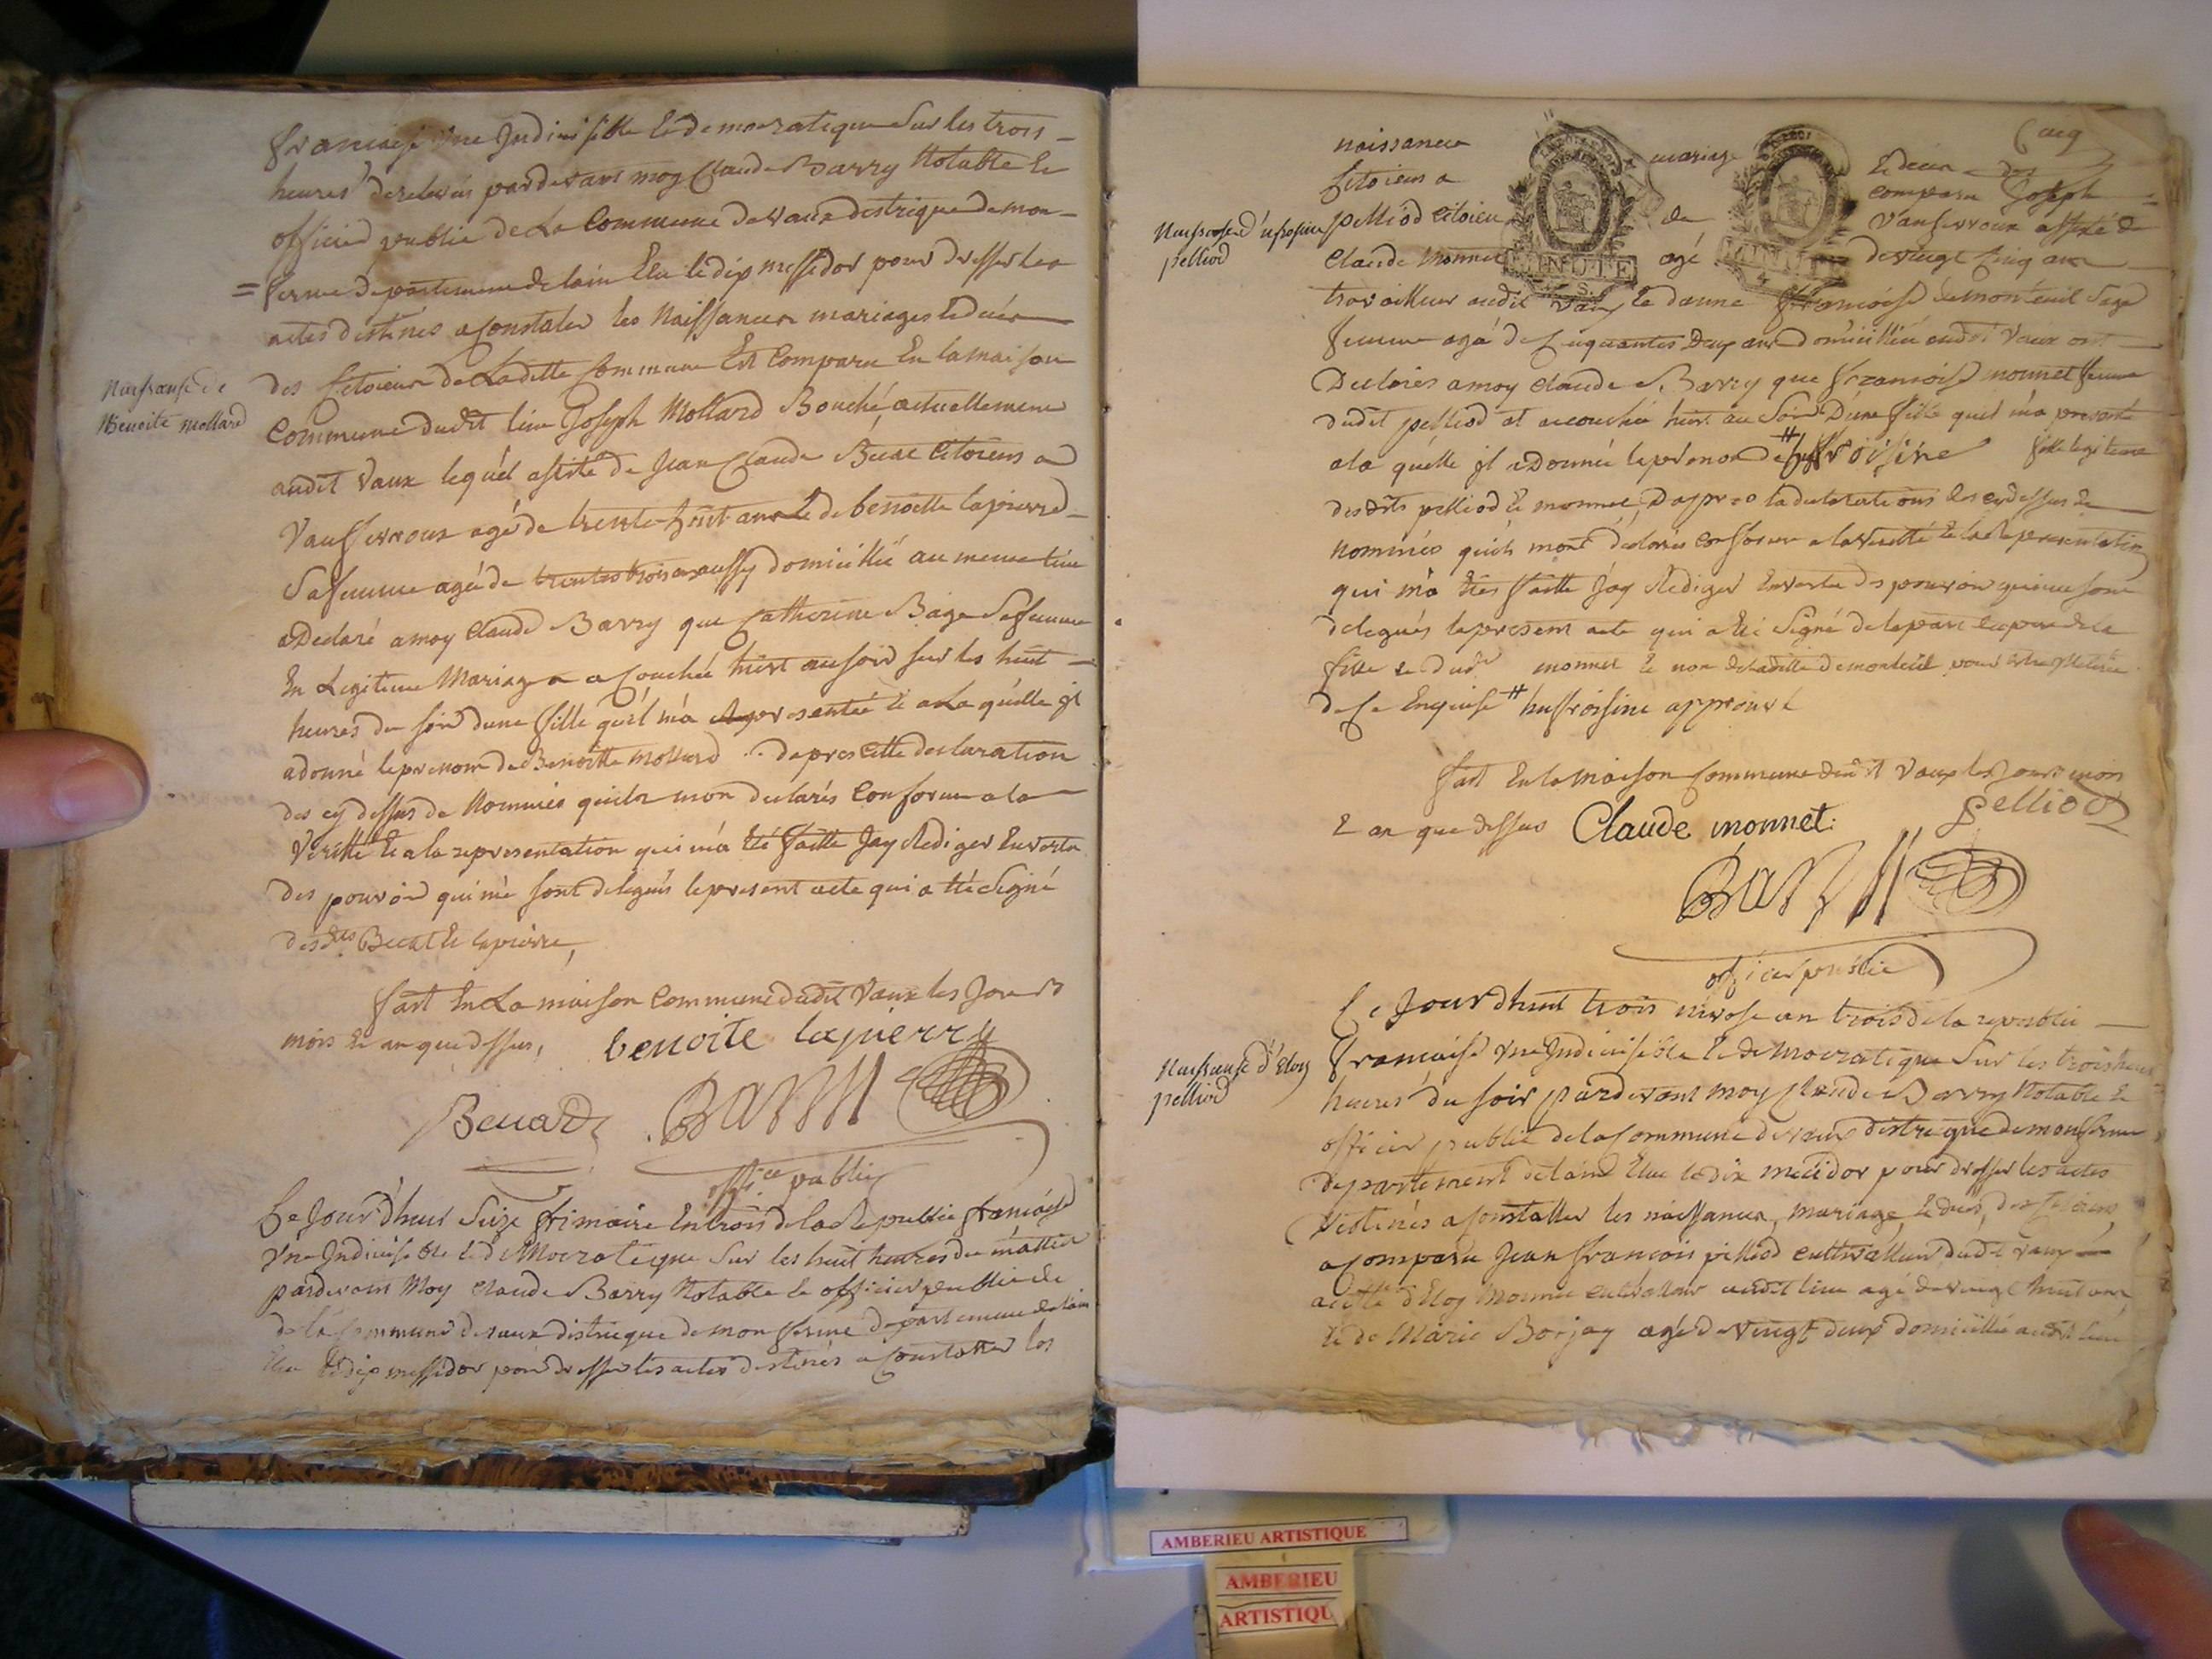 francaise une Indivisible et democratique Sur les trois
heures de relevés pardevant moy Claude Barry Notable et
officier public de La Commune de vaux destrique de mon
= ferme département de lain Elu le dix messidor pour dresser les
actes destinés a Constater les Naissances mariages et deces
Naissanse de
Benoite mollard
des Citoiens de Laditte Commune Est Comparu En la maison
Commune dudit lieu Joseph Mollard Bouché actuellement
audit Vaux lequel asisté de Jean Claude Citoiens a
Vaufevroux agé de trente huit ans et de benoitte lapierre
Sa femme agée de trentes trois ans aussy domiciliée au meme lieu
a Déclaré a moy Claude Barry que Catherine Sa femme
En Legitime Mariage a acouchée hiert au soir sur les huit
heures du soir dune fille quil m'a representée et a La quelle jl
a donné le prenom de Benoitte mollard dapres cette declaration
des cy dessus de Nommés quils mon declarés Conforme a la
Verité et a la representation qui m'a été faitte Jay Rediger En vertu
des pouvoir qui me sont delegués le present acte qui a été Signé
desdts et lapierre,
fait En La maison Commune dudit Vaux les Jours
mois et an que dessus, benoite lapierre
Barry
officier public
Ce Jourd'hui Seize frimaire En trois de la Republic francaise
une Indivisible et de Mocratique Sur les huit heures du mattin
pardevant Moy Claude Barry Notable et officier public de
de la Commune de vaux districque de mon ferme departement de lain
Elu le dix messidor pour dresser les actes destinés a Constatter les
Cinq
naissances mariage et deces des
Citoiens a comparu Joseph
Naissanse d'
pelliod
pelliod Citoien de Vaufevroux assisté de
Claude Monnet agé de vingt Cinq ans
MINUTE
MINUTE
travailleur audit Vaux et danne françoise demonteuil Sage
femme agé de Cinquantes Deux ans domiciliée audit Vaux ont
Declarés a moy Claude Barry que françoise monnet femme
dudit pelliod et acouchée hiert au Soir D'une fille quil m'a presenté
a la quelle jl a Donnée le prenom de # froisine fille legitime
desdts pelliod et monnet, D'apres la declarations des cy dessus de
nommés quils mont déclarés conforme a la verité et la Representation
qui m'a Etés faitte Jay Rediger En vertu des pouvoir qui me sont
delegués le present acte qui a été Signé de la part du pere de la
fille et dudt monnet et non de laditte demonteuil pour
de ce Enquise # huffroisine approuvé
fait En la maison Commune dudit Vaux les Jours mois
E an que dessus Claude monnet: Pelliod
Barry
officier public
Ce Jourdhuit trois nivose an trois de la republic
Naissanse d'Eloy
pelliod
francaise une Indivisible et de Mocratique Sur les trois heures
heures du soir pardevant moy Claude Barry Notable et
officier public de la Commune de vaux destrique de monferme
departement de lain Elue le dix mecidor pour dresser les actes
destinés a Constatter les naissances, mariage, et deces, des Citoiens,
a Comparu Jean francois pelliod cultivatteur dudt vaux
acisté d'Eloy Monnet cultivateur audit lieu agé de vingt huit ans
et de Marie Borjay agé de vingt deux domiciliée audit lieu
AMBERIEU ARTISTIQUE
AMBERIEU
ARTISTIQU